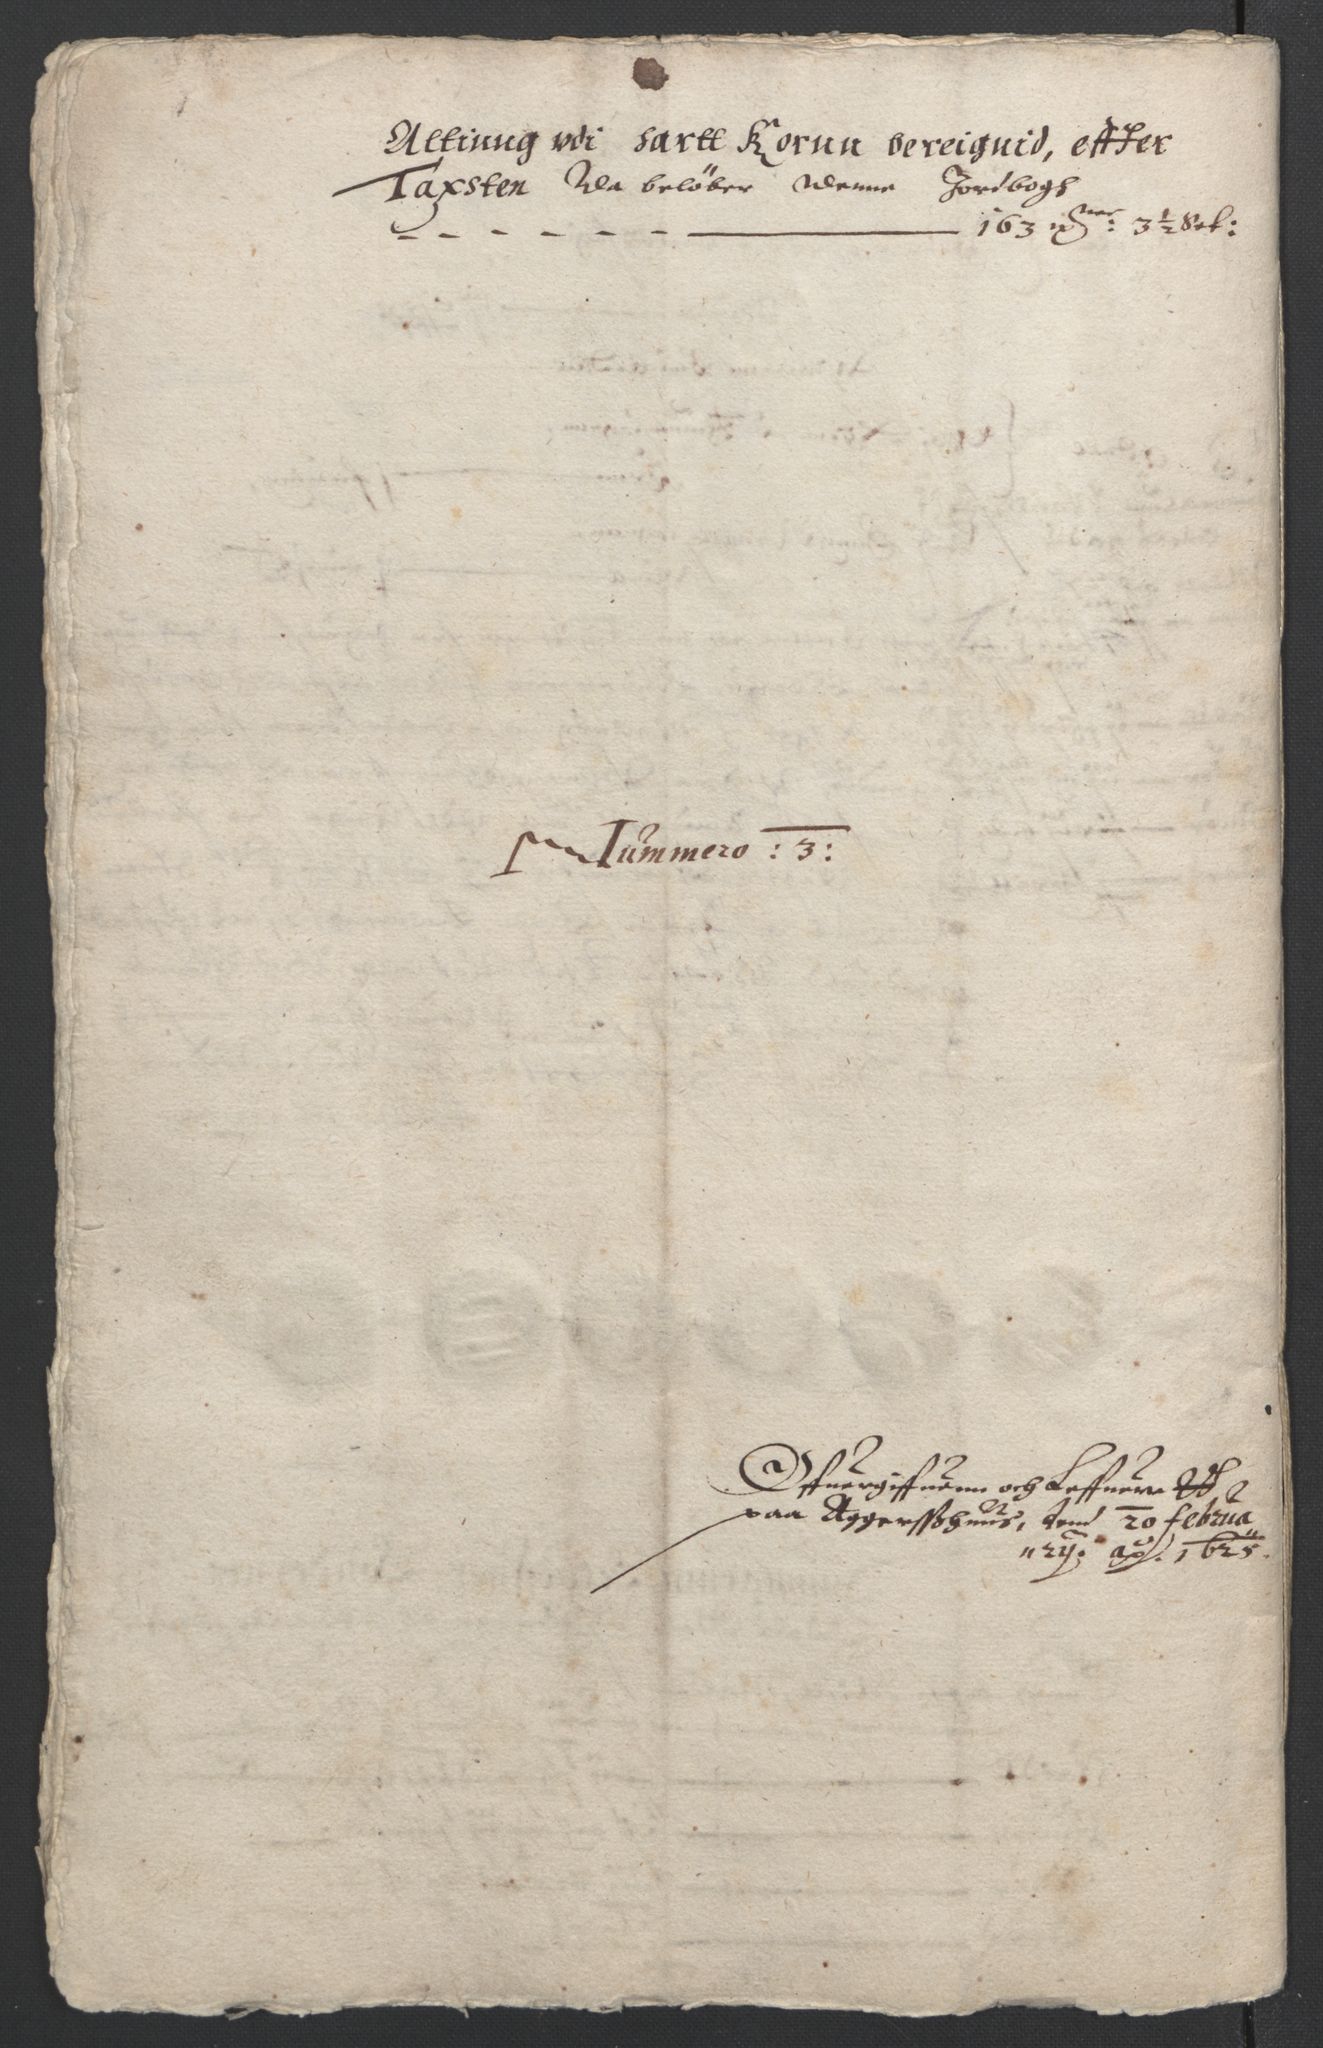 Alting vdi hartt Kornn bereignid, effter
Taxsten Da beløber denne Jordbogh
163 3½ Set:
Nummero : 3:
Offuergiffuenn och Leffuert
paa Aggersshuus, denn 20 februa
rij. Ao. 1625.